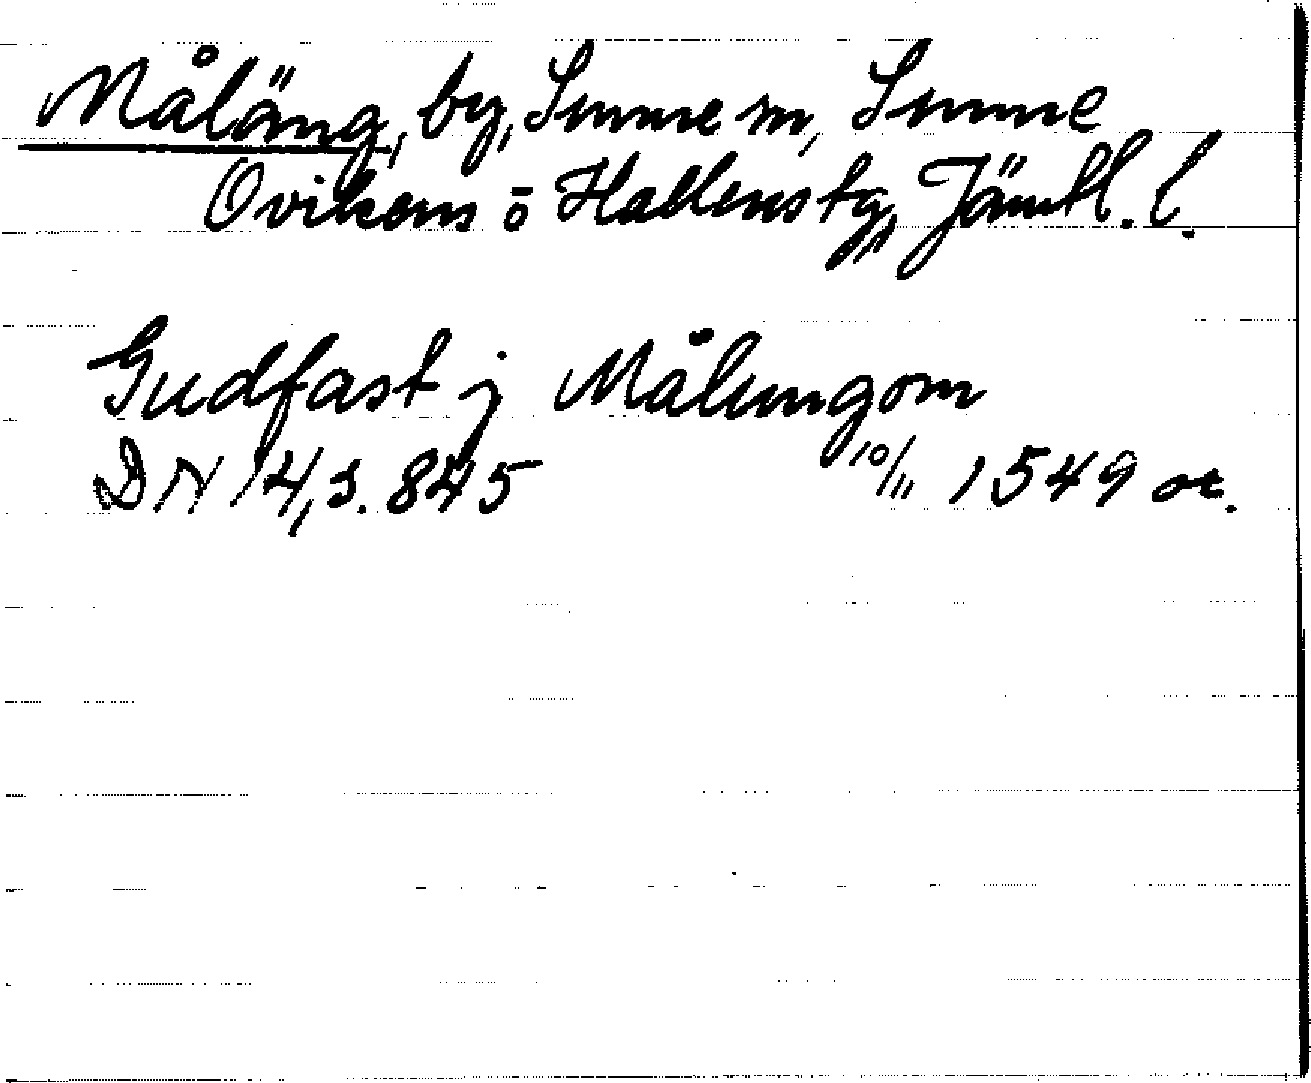 Måläng, by, Sunne sn, Sunne
Ovikens o Hallens tg, Jämtl. l.
Gudfast j Målungom
DN 14, s. 845 10/11 1549 or.